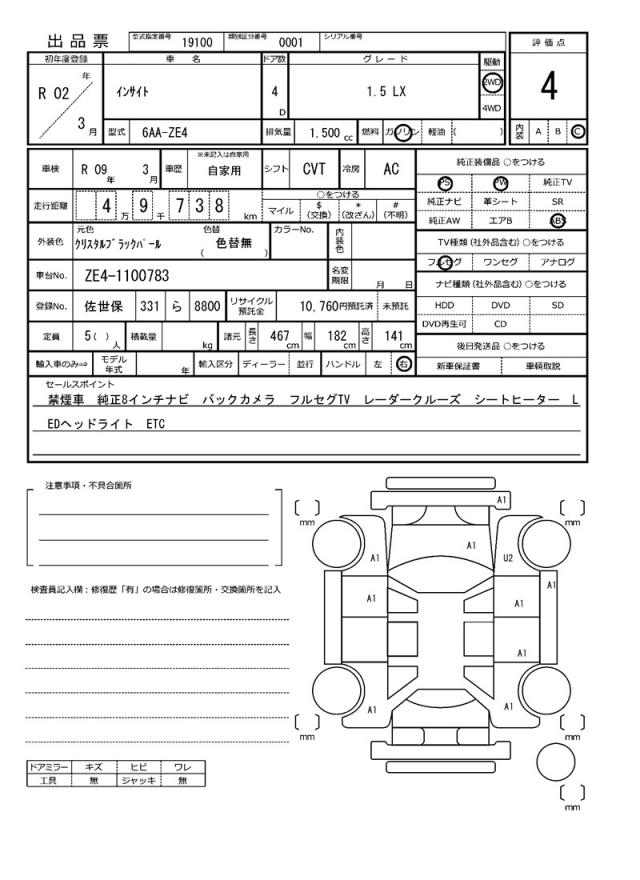 出品票 型式指定番号 19100 類別区分番号 0001 シリアル番号
評価点
初年度登録 車 名 ドア数 グレード 駆動
R 02 年 3 月 インサイト 4 D 1.5 LX 2WD 4WD
4
型式 6AA-ZE4 排気量 1.500 cc 燃料 ガソリン 軽油 ( ) 内装 A B C
車検 R 09 年 3 月 車歴 ※未記入は自家用 自家用 シフト CVT 冷房 AC
純正装備品 ○をつける
PS PW 純正TV
純正ナビ 革シート SR
純正AW エアB ABS
走行距離 4 万 9 千 7 3 8 km ○をつける
マイル $ (交換) * (改ざん) # (不明)
外装色 元色 クリスタルブラックパール 色替 ( 色替無 ) カラーNo. 内装色
TV種類 (社外品含む) ○をつける
フルセグ ワンセグ アナログ
車台No. ZE4-1100783 名変期限 月 日
ナビ種類 (社外品含む) ○をつける
HDD DVD SD
DVD再生可 CD
登録No. 佐世保 331 ら 8800 リサイクル預託金 10,760円預託済 未預託
定員 5( ) 人 積載量 kg 諸元 長さ 467 cm 幅 182 cm 高さ 141 cm
後日発送品 ○をつける
新車保証書 車輌取説
輸入車のみ⇒ モデル年式 年 輸入区分 ディーラー 並行 ハンドル 左 右
セールスポイント
禁煙車 純正8インチナビ バックカメラ フルセグTV レーダークルーズ シートヒーター L
EDヘッドライト ETC
注意事項・不具合箇所
検査員記入欄：修復歴「有」の場合は修復箇所・交換箇所を記入
A1
mm mm
A1 A1 U2
A1 A1 A1
A1
A1 A1
mm mm
mm
ドアミラー キズ ヒビ ワレ
工具 無 ジャッキ 無